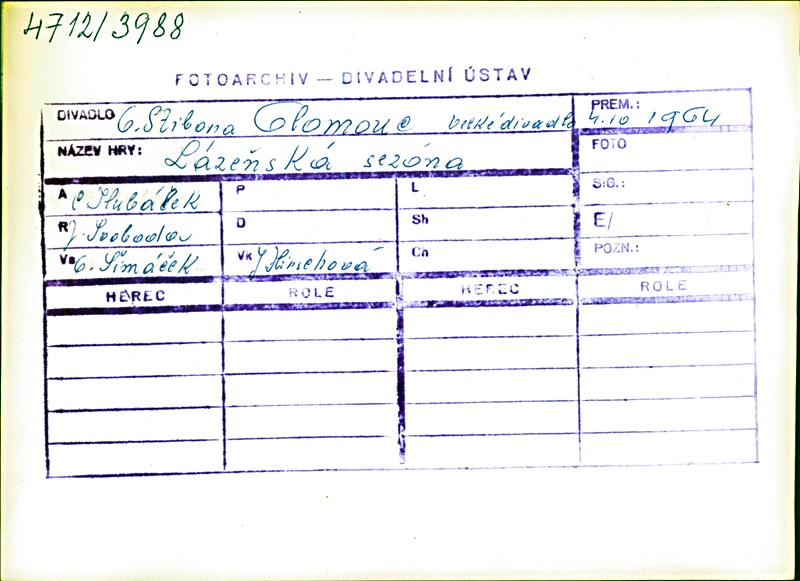 4712/3988
FOTOARCHIV — DIVADELNÍ ÚSTAV
DIVADLO O. Stibora Olomouc velké divadlo PREM.: 4.10 1964
NÁZEV HRY: Lázeňská sezóna FOTO
A P L SIG.:
R J. Svoboda D Sh E/
Vs O. Šimáček Vk J Hirschová Ch POZN.:
HEREC ROLE HEREC ROLE